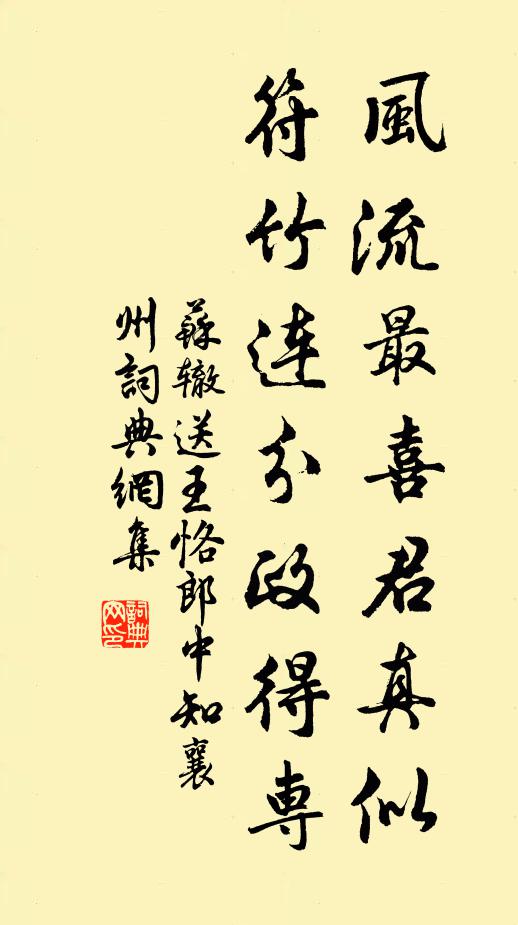 風流最喜君真似
符竹連分政得専
蘇轍送王恪郎中知襄
州詞典網集
詞典网印